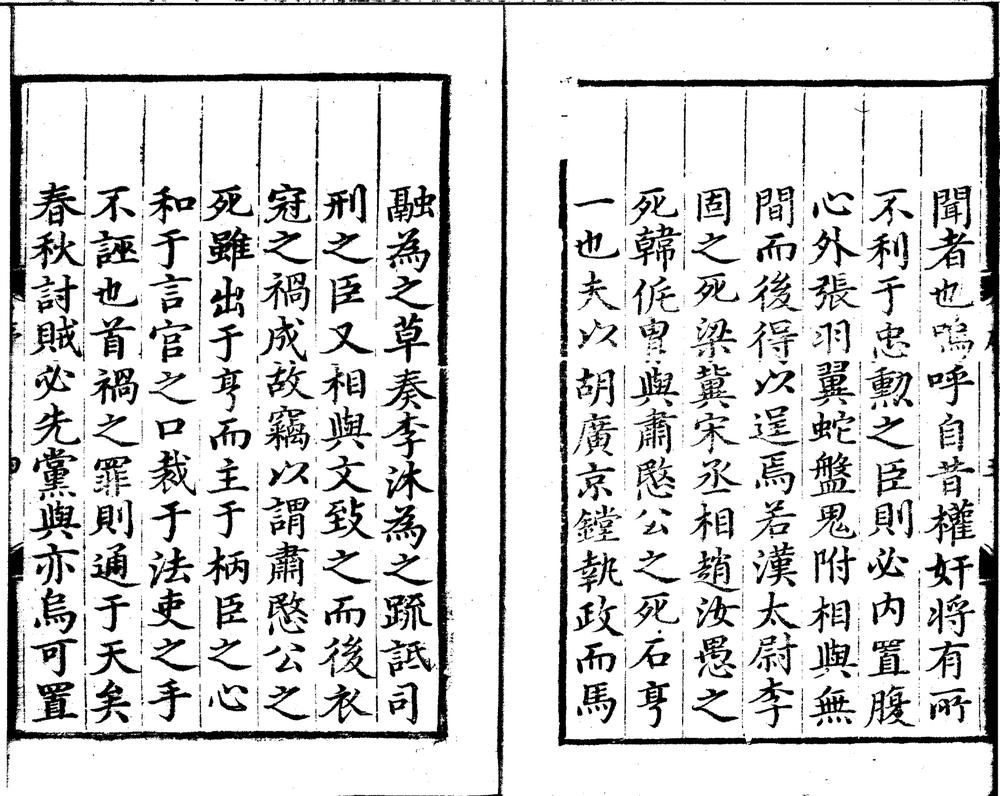 聞者也嗚呼自昔權奸將有所
不利于忠勲之臣則必内置腹
心外張羽翼蛇盤鬼附相與無
間而後得以逞焉若漢太尉李
固之死梁冀宋丞相趙汝愚之
死韓侂冑與肅愍公之死石亨
一也夫以胡廣京鏜執政而馬
融為之草奏李沐為之䟽詆司
刑之臣又相與文致之而後衣
冠之禍成故竊以謂肅愍公之
死雖出于亨而主于柄臣之心
和于言官之口裁于法吏之手
不誣也首禍之罪則通于天矣
春秋討賊必先黨與亦烏可置